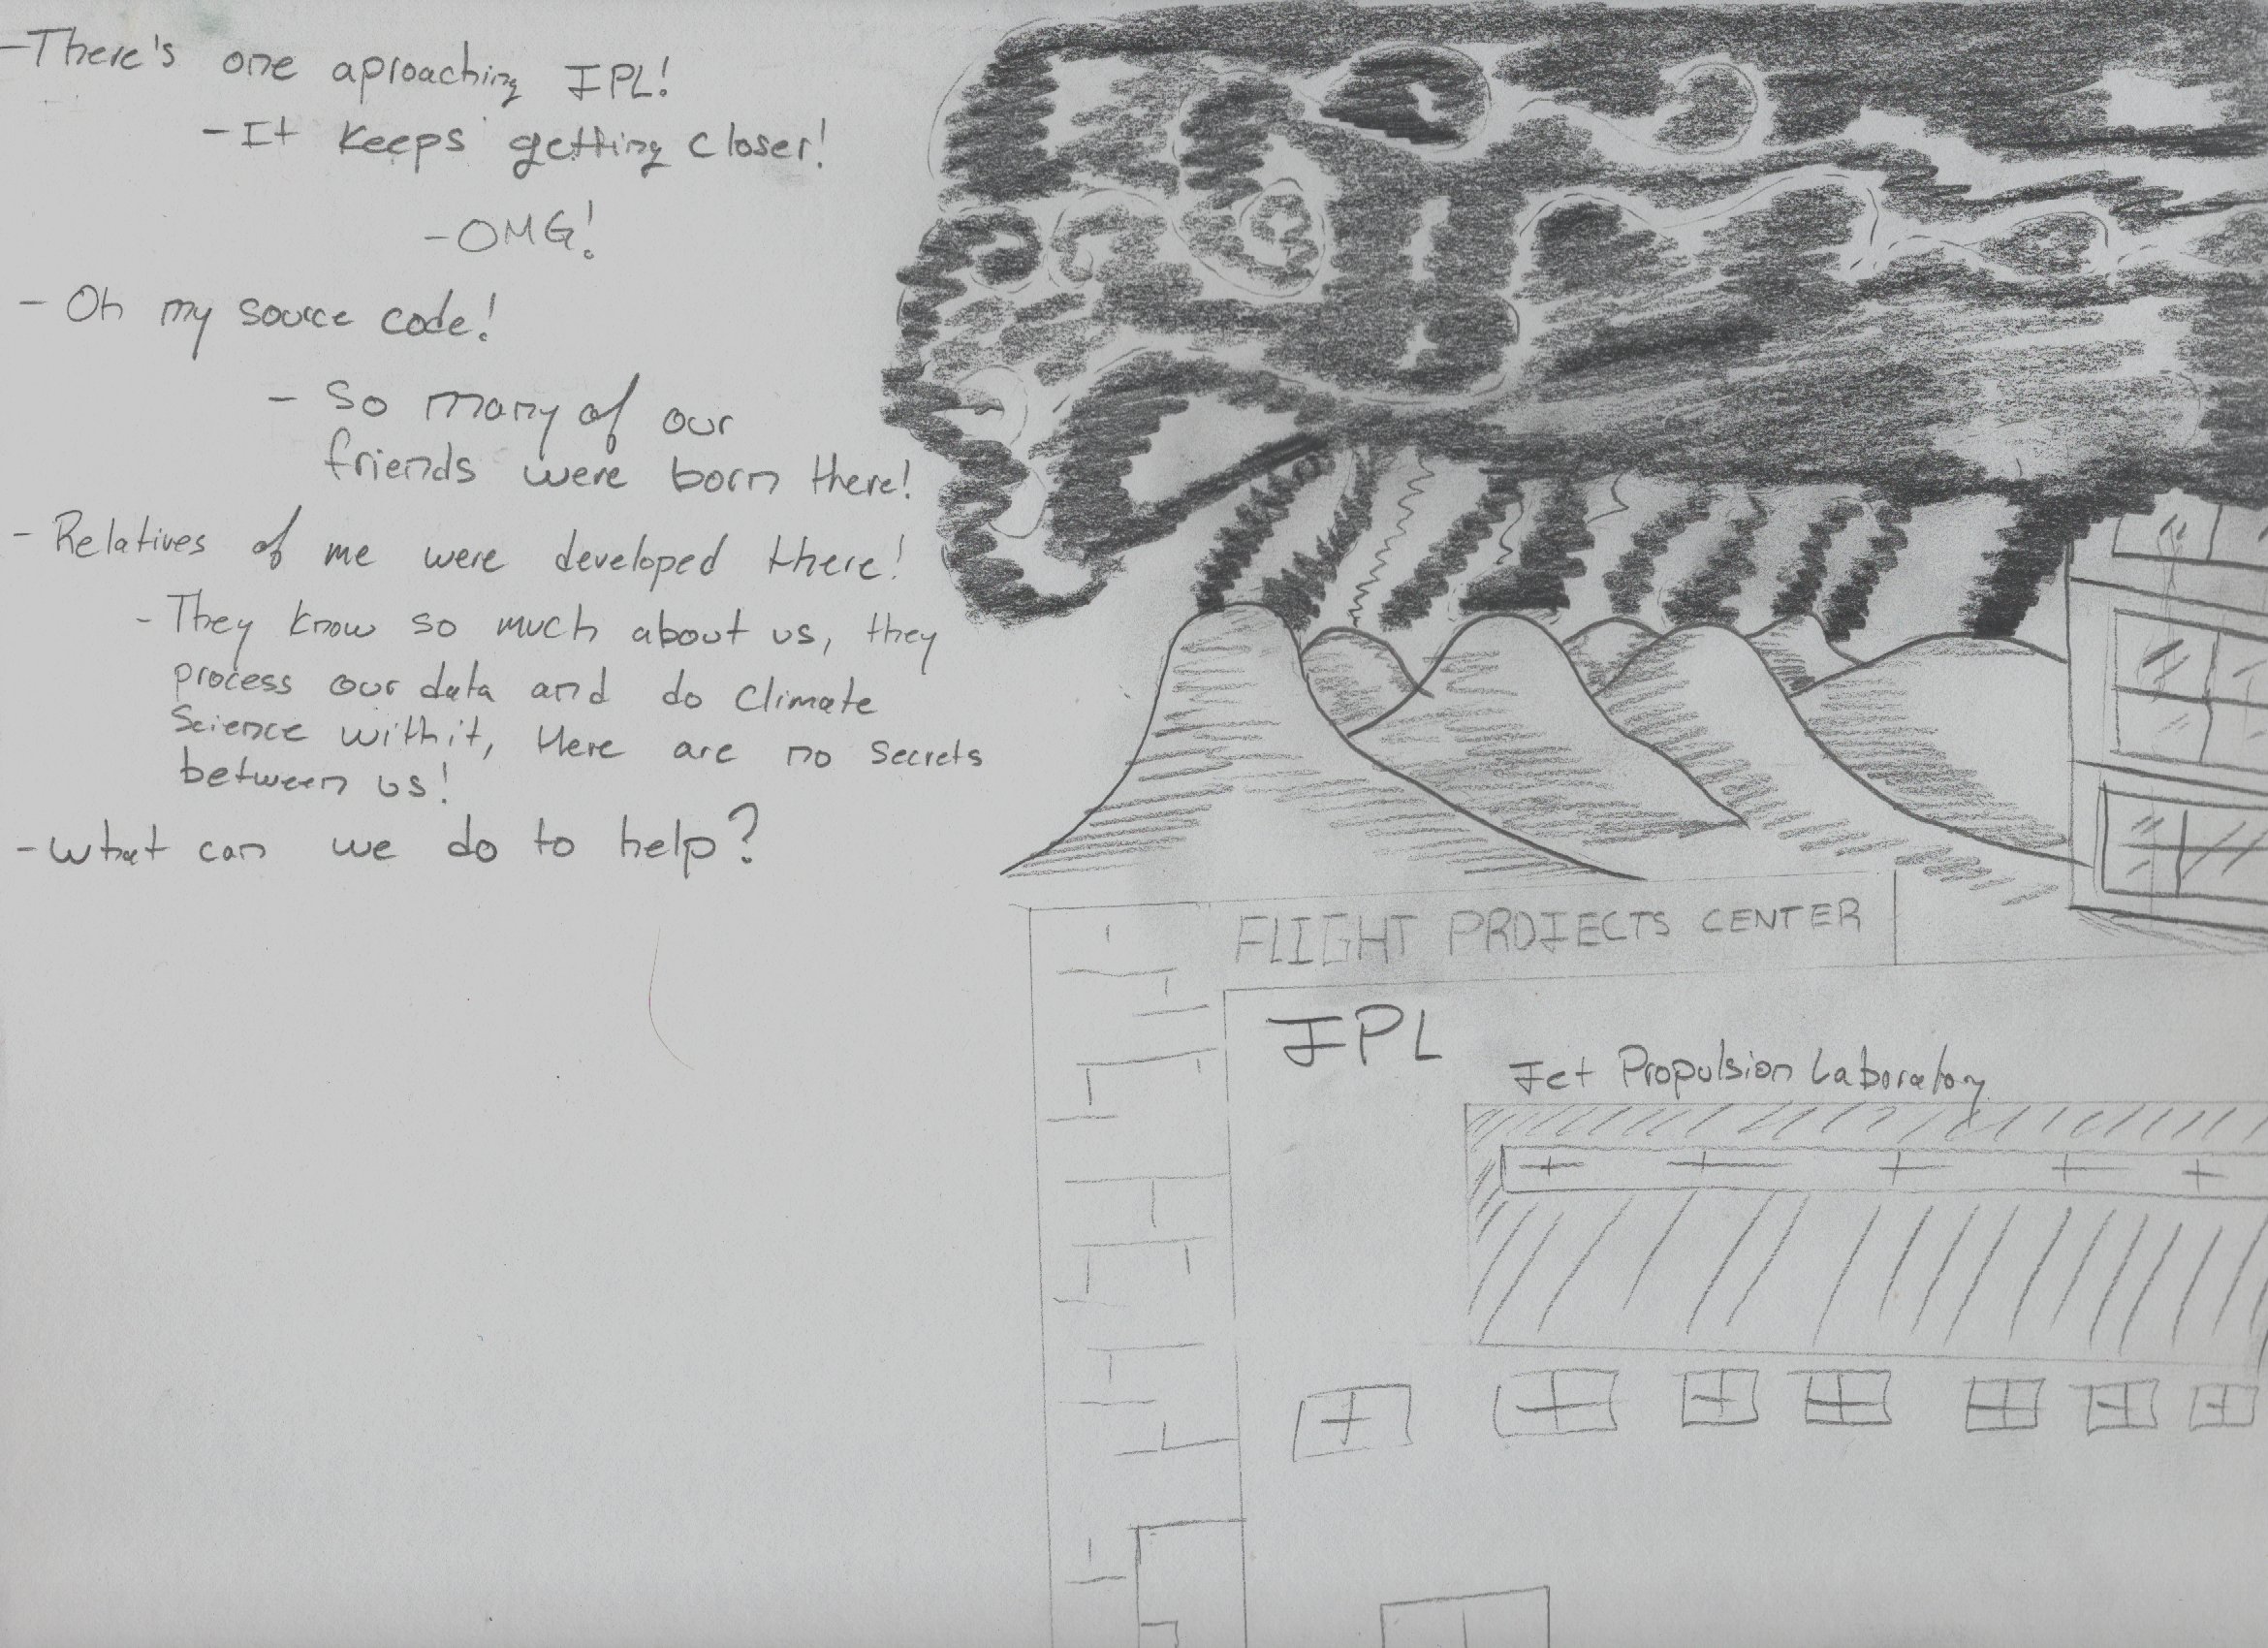 - There's one aproaching JPL!
- It keeps getting closer!
- OMG!
- Oh my source code!
- So many of our
friends were born there!
- Relatives of me were developed there!
- They know so much about us, they
process our data and do climate
science with it, there are no secrets
between us!
- What can we do to help?
FLIGHT PROJECTS CENTER
JPL
Jet Propulsion Laboratory